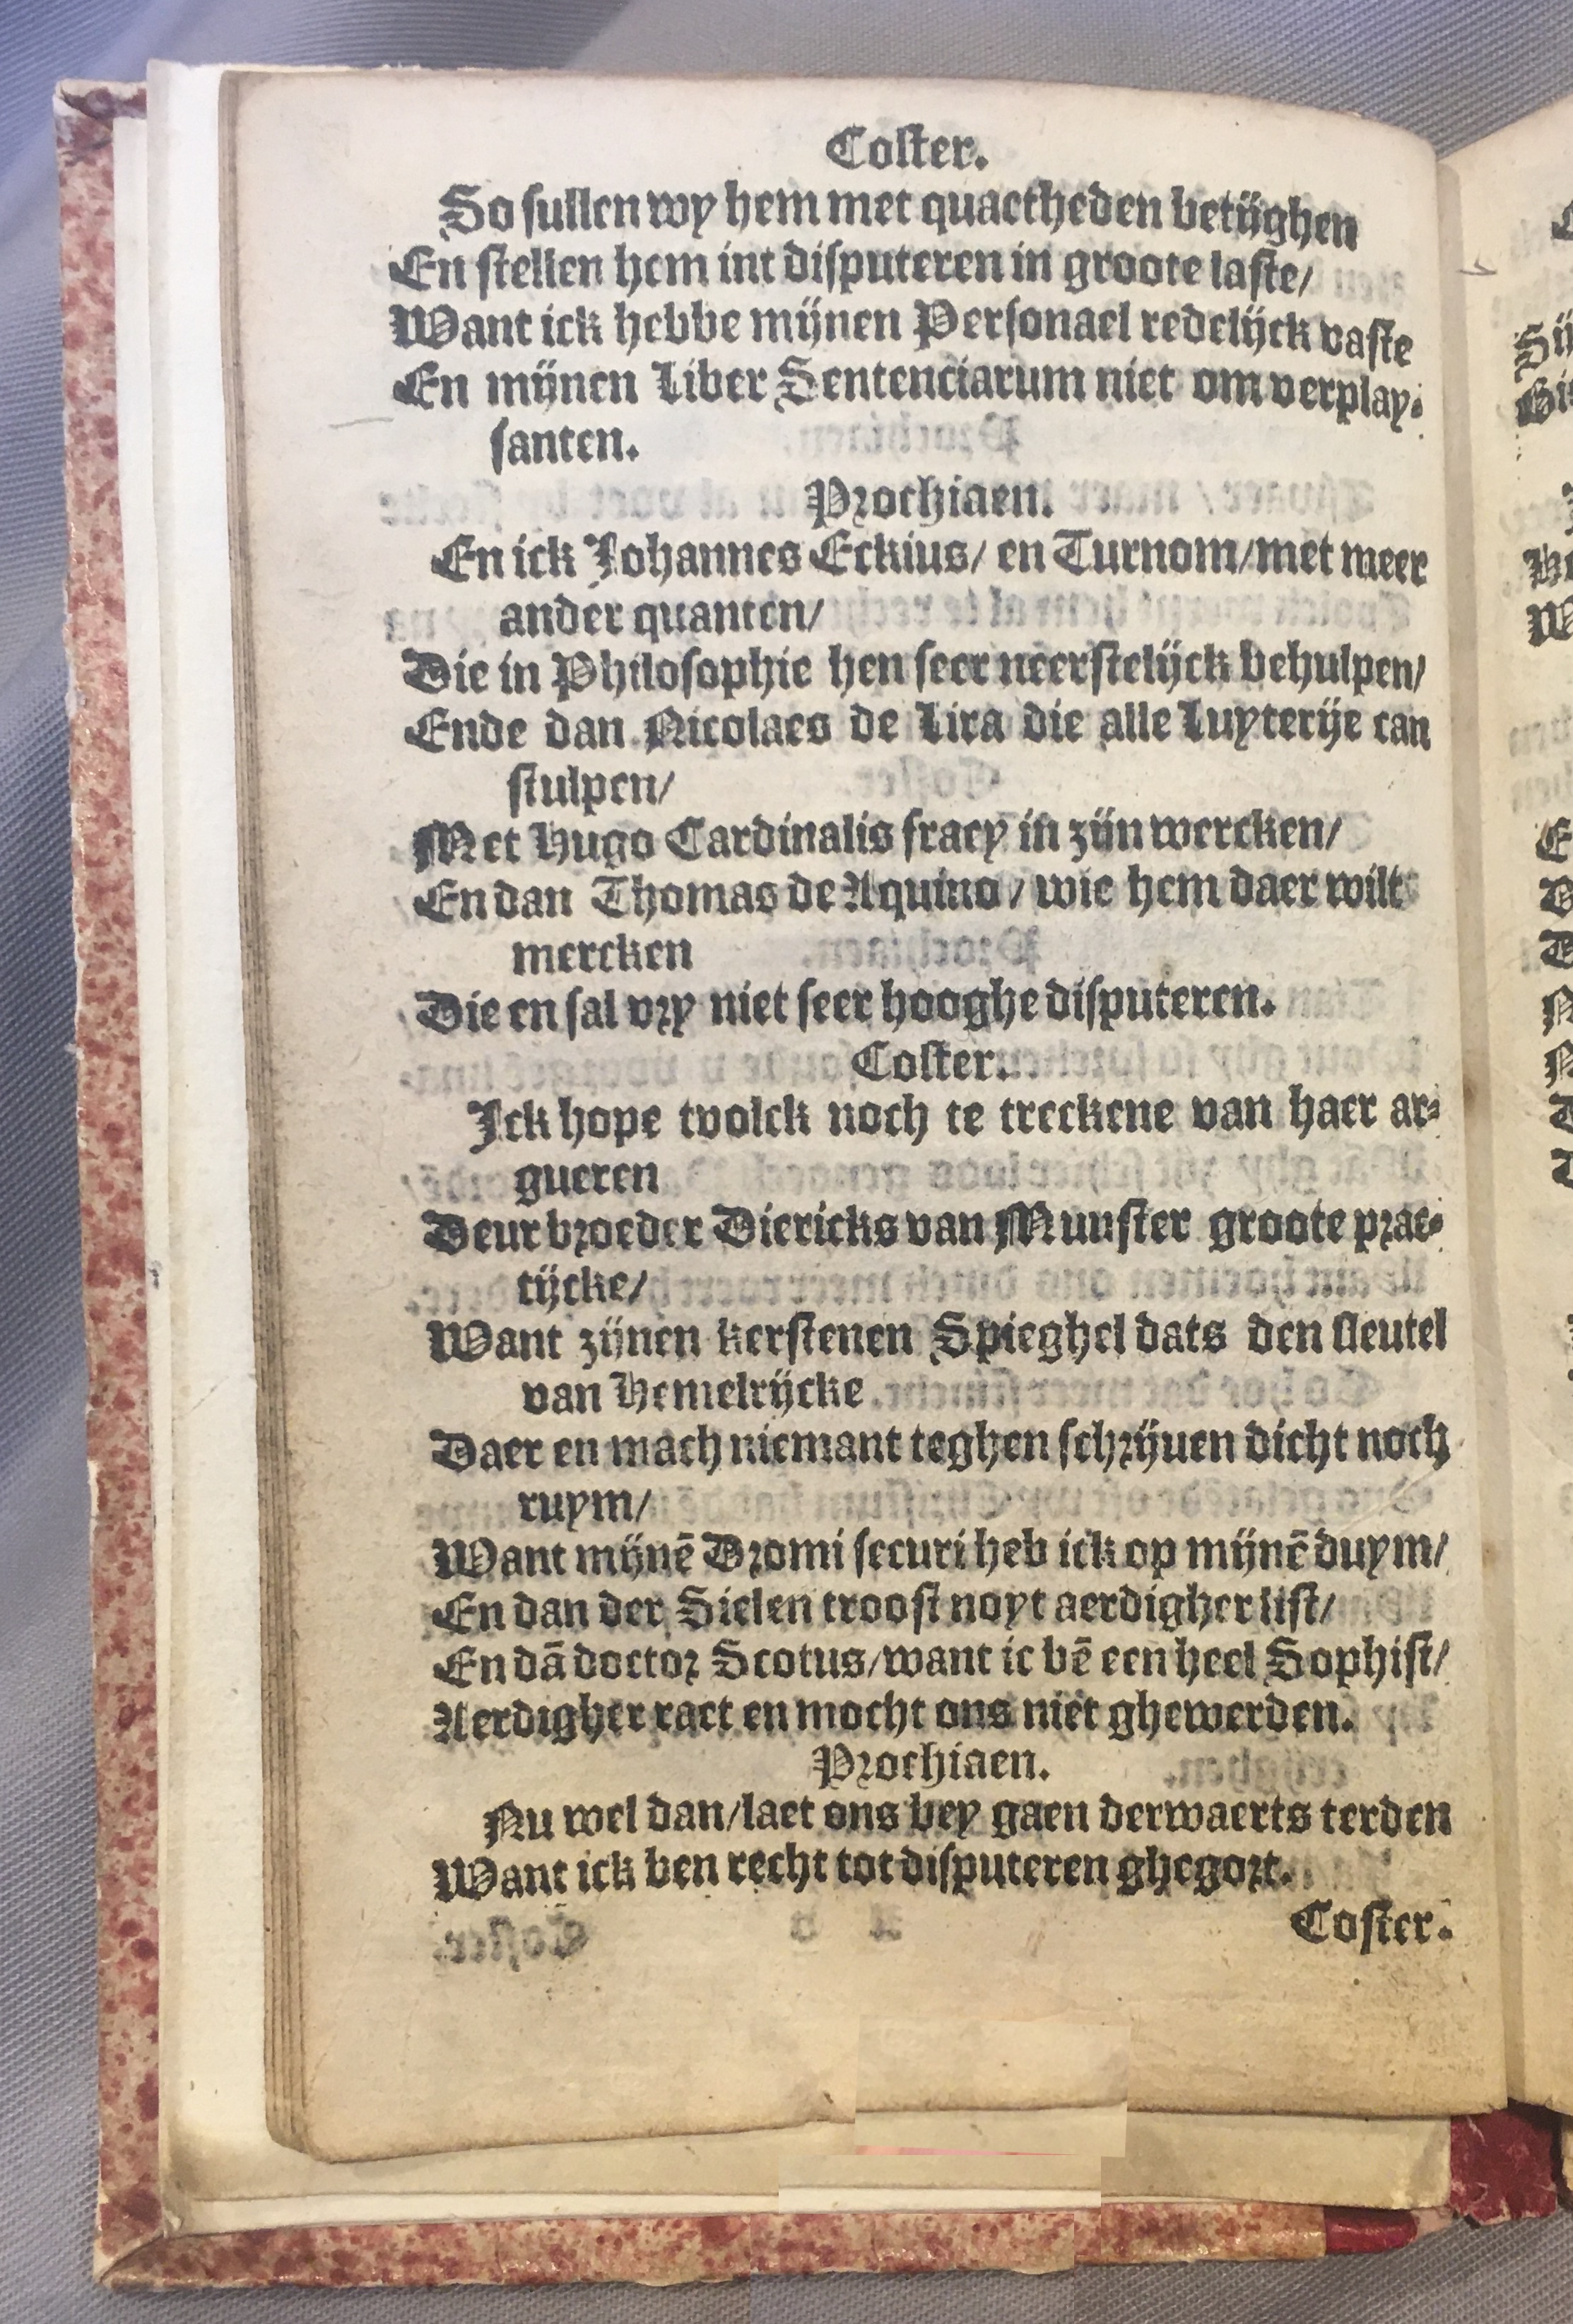 Coster.
So sullen wy hem met quaetheden betijghen
En stellen hem int disputeren in groote laste/
Want ick hebbe mijnen Personael redelijck vaste
En mijnen Liber Sentenciarum niet om verplay⸗
santen.
Prochiaen.
En ick Johannes Eckius/ en Turnom/met meer
ander quanten/
Die in Philosophie hen seer neerstelijck behulpen/
Ende dan Nicolaes de Lira die alle Luyterije can
stulpen/
Met Hugo Cardinalis fraey in zijn wercken/
En dan Thomas de Aquino/ wie hem daer wilt
mercken
Die en sal vry niet seer hooghe disputeren.
Coster.
Ick hope tvolck noch te treckene van haer ar⸗
gueren
Deur broeder Diericks van Munster groote prac⸗
tijcke/
Want zijnen kerstenen Spieghel dats den sleutel
van Hemelrijcke
Daer en mach niemant teghen schrijuen dicht noch
ruym/
Want mijnē Dromi securi heb ick op mijnē duym/
En dan der Sielen troost noyt aerdigher list/
En dā doctor Scotus/want ic bē een heel Sophist/
Aerdigher raet en mocht ons niet ghewerden.
Prochiaen.
Nu wel dan/laet ons bey gaen derwaerts terden
Want ick ben recht tot disputeren ghegort.
Coster.